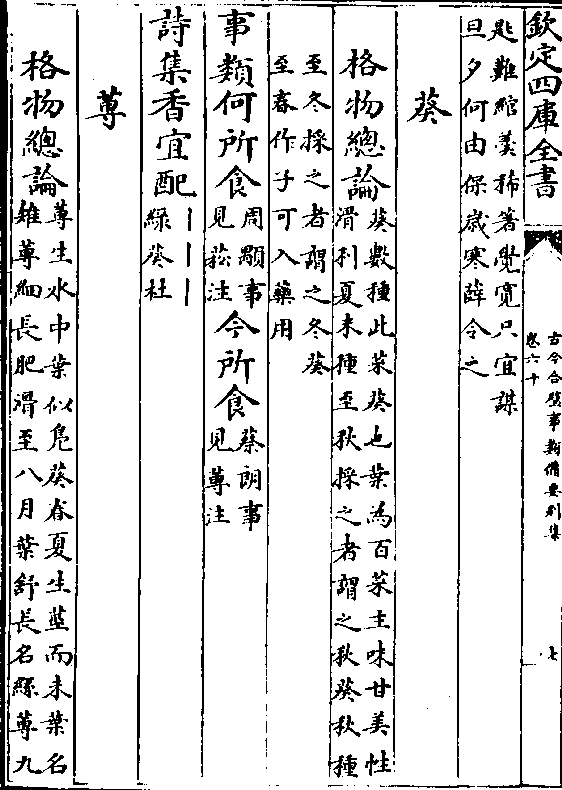 欽定四庫全書
古今合璧事類備要別集
卷六十
七
匙難綰羮稀箸覺寛只宜謀
旦夕何由保歲寒薛令之
葵
格物總論葵數種此菜葵也葉為百菜主味甘美性
滑利夏末種至秋採之者謂之秋葵秋種
至冬採之者謂之冬葵
至春作子可入藥用
事類何所食周顒事
見菘注
今所食蔡朗事
見蓴注
詩集香宜配丨丨丨
綠葵杜
蓴
格物總論蓴生水中葉似鳬葵春夏生莖而未葉名
雉蓴細長肥滑至八月葉舒長名絲蓴九